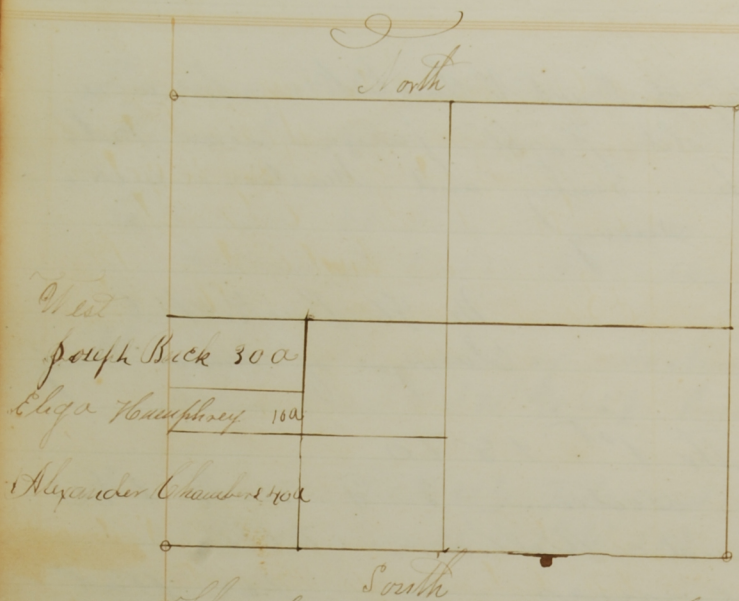 North
West
Joseph Buck 30 a
Eliga Humphrey 10 a
Alexander Chambers 40 a
South